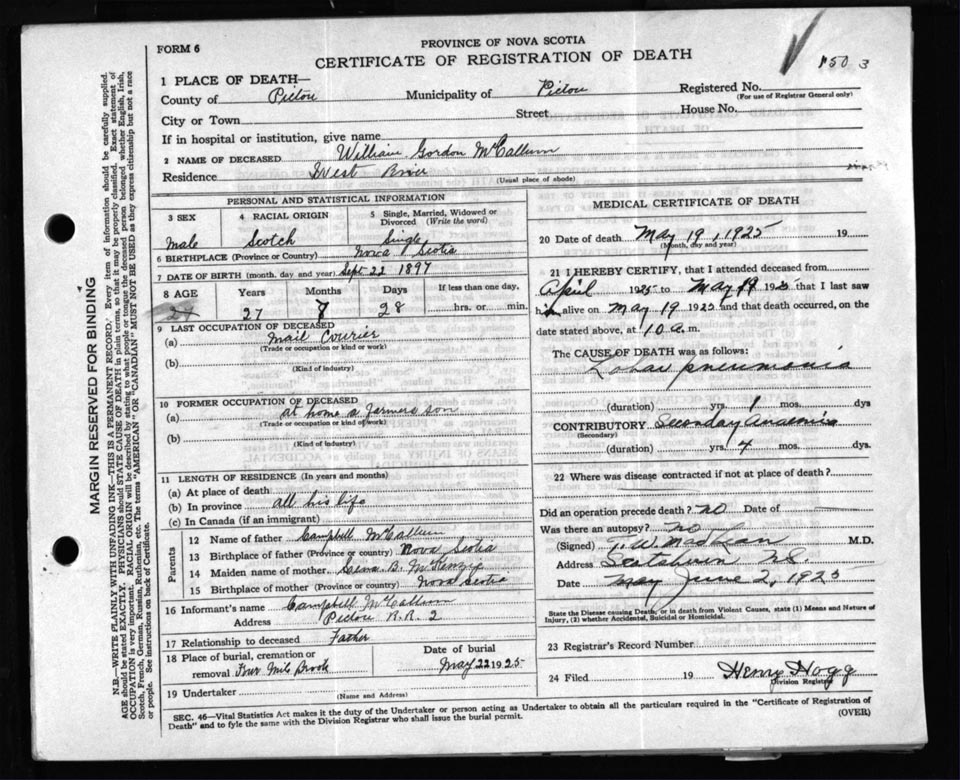 FORM 6
PROVINCE OF NOVA SCOTIA
CERTIFICATE OF REGISTRATION OF DEATH
1 PLACE OF DEATH—
County of Pictou Municipality of Pictou Registered No.
(For use of Registrar General only)
City or Town Street House No.
If in hospital or institution, give name
2 NAME OF DECEASED William Gordon McCallum
Residence West River
(Usual place of abode)
PERSONAL AND STATISTICAL INFORMATION
3 SEX 4 RACIAL ORIGIN 5 Single, Married, Widowed or Divorced (Write the word)
Male Scotch Single
6 BIRTHPLACE (Province or Country) Nova Scotia
7 DATE OF BIRTH (month, day and year) Sept 22 1897
8 AGE Years Months Days If less than one day,
27 7 28 hrs. or min.
9 LAST OCCUPATION OF DECEASED
(a) Mail Courier
(Trade or occupation or kind or work)
(b)
(Kind of industry)
10 FORMER OCCUPATION OF DECEASED
(a) at home a farmers son
(Trade or occupation or kind of work)
(b)
(Kind of industry)
11 LENGTH OF RESIDENCE (In years and months)
(a) At place of death
(b) In province all his life
(c) In Canada (if an immigrant)
Parents
12 Name of father Campbell McCallum
13 Birthplace of father (Province or country) Nova Scotia
14 Maiden name of mother B. McKenzie
15 Birthplace of mother (Province or country) Nova Scotia
16 Informant's name Campbell McCallum
Address Pictou R.R. 2
17 Relationship to deceased Father
18 Place of burial, cremation or removal Four Mile Brook
Date of burial
May 22 1925
19 Undertaker
(Name and Address)
MEDICAL CERTIFICATE OF DEATH
20 Date of death May 19, 1925 19
(Month, day and year)
21 I HEREBY CERTIFY, that I attended deceased from
April 1925 to May 19 1925 that I last saw
h alive on May 19 1925 and that death occurred, on the
date stated above, at 10 a.m.
The CAUSE OF DEATH was as follows:
Lobar pneumonia
(duration) yrs. 1 mos. dys
CONTRIBUTORY Secondary Anaemia
(Secondary)
(duration) yrs. 4 mos. dys.
22 Where was disease contracted if not at place of death?
Did an operation precede death? NO Date of
Was there an autopsy? NO
(Signed) T. W. MacLean M.D.
Address Scotsburn N.S.
Date May June 2, 1925
State the Disease causing Death, or in death from Violent Causes, state (1) Means and Nature of
Injury, (2) whether Accidental, Suicidal or Homicidal.
23 Registrar's Record Number
24 Filed 19 Henry Hogg
Division Registrar
SEC. 46—Vital Statistics Act makes it the duty of the Undertaker or person acting as Undertaker to obtain all the particulars required in the "Certificate of Registration of
Death" and to fyle the same with the Division Registrar who shall issue the burial permit.
(OVER)
MARGIN RESERVED FOR BINDING
N.B.—WRITE PLAINLY WITH UNFADING INK—THIS IS A PERMANENT RECORD. Every item of information should be carefully supplied.
AGE should be stated EXACTLY. PHYSICIANS should STATE CAUSE OF DEATH in plain terms, so that it may be properly classified. Exact statement of
OCCUPATION is very important. RACIAL ORIGIN will be described by stating to what people or tongue the deceased person belonged whether English, Irish,
Scotch, French, German, Russian, Ruthenian, etc. The terms "AMERICAN" OR "CANADIAN" MUST NOT BE USED as they express citizenship but not a race
or people. See instructions on back of Certificate.